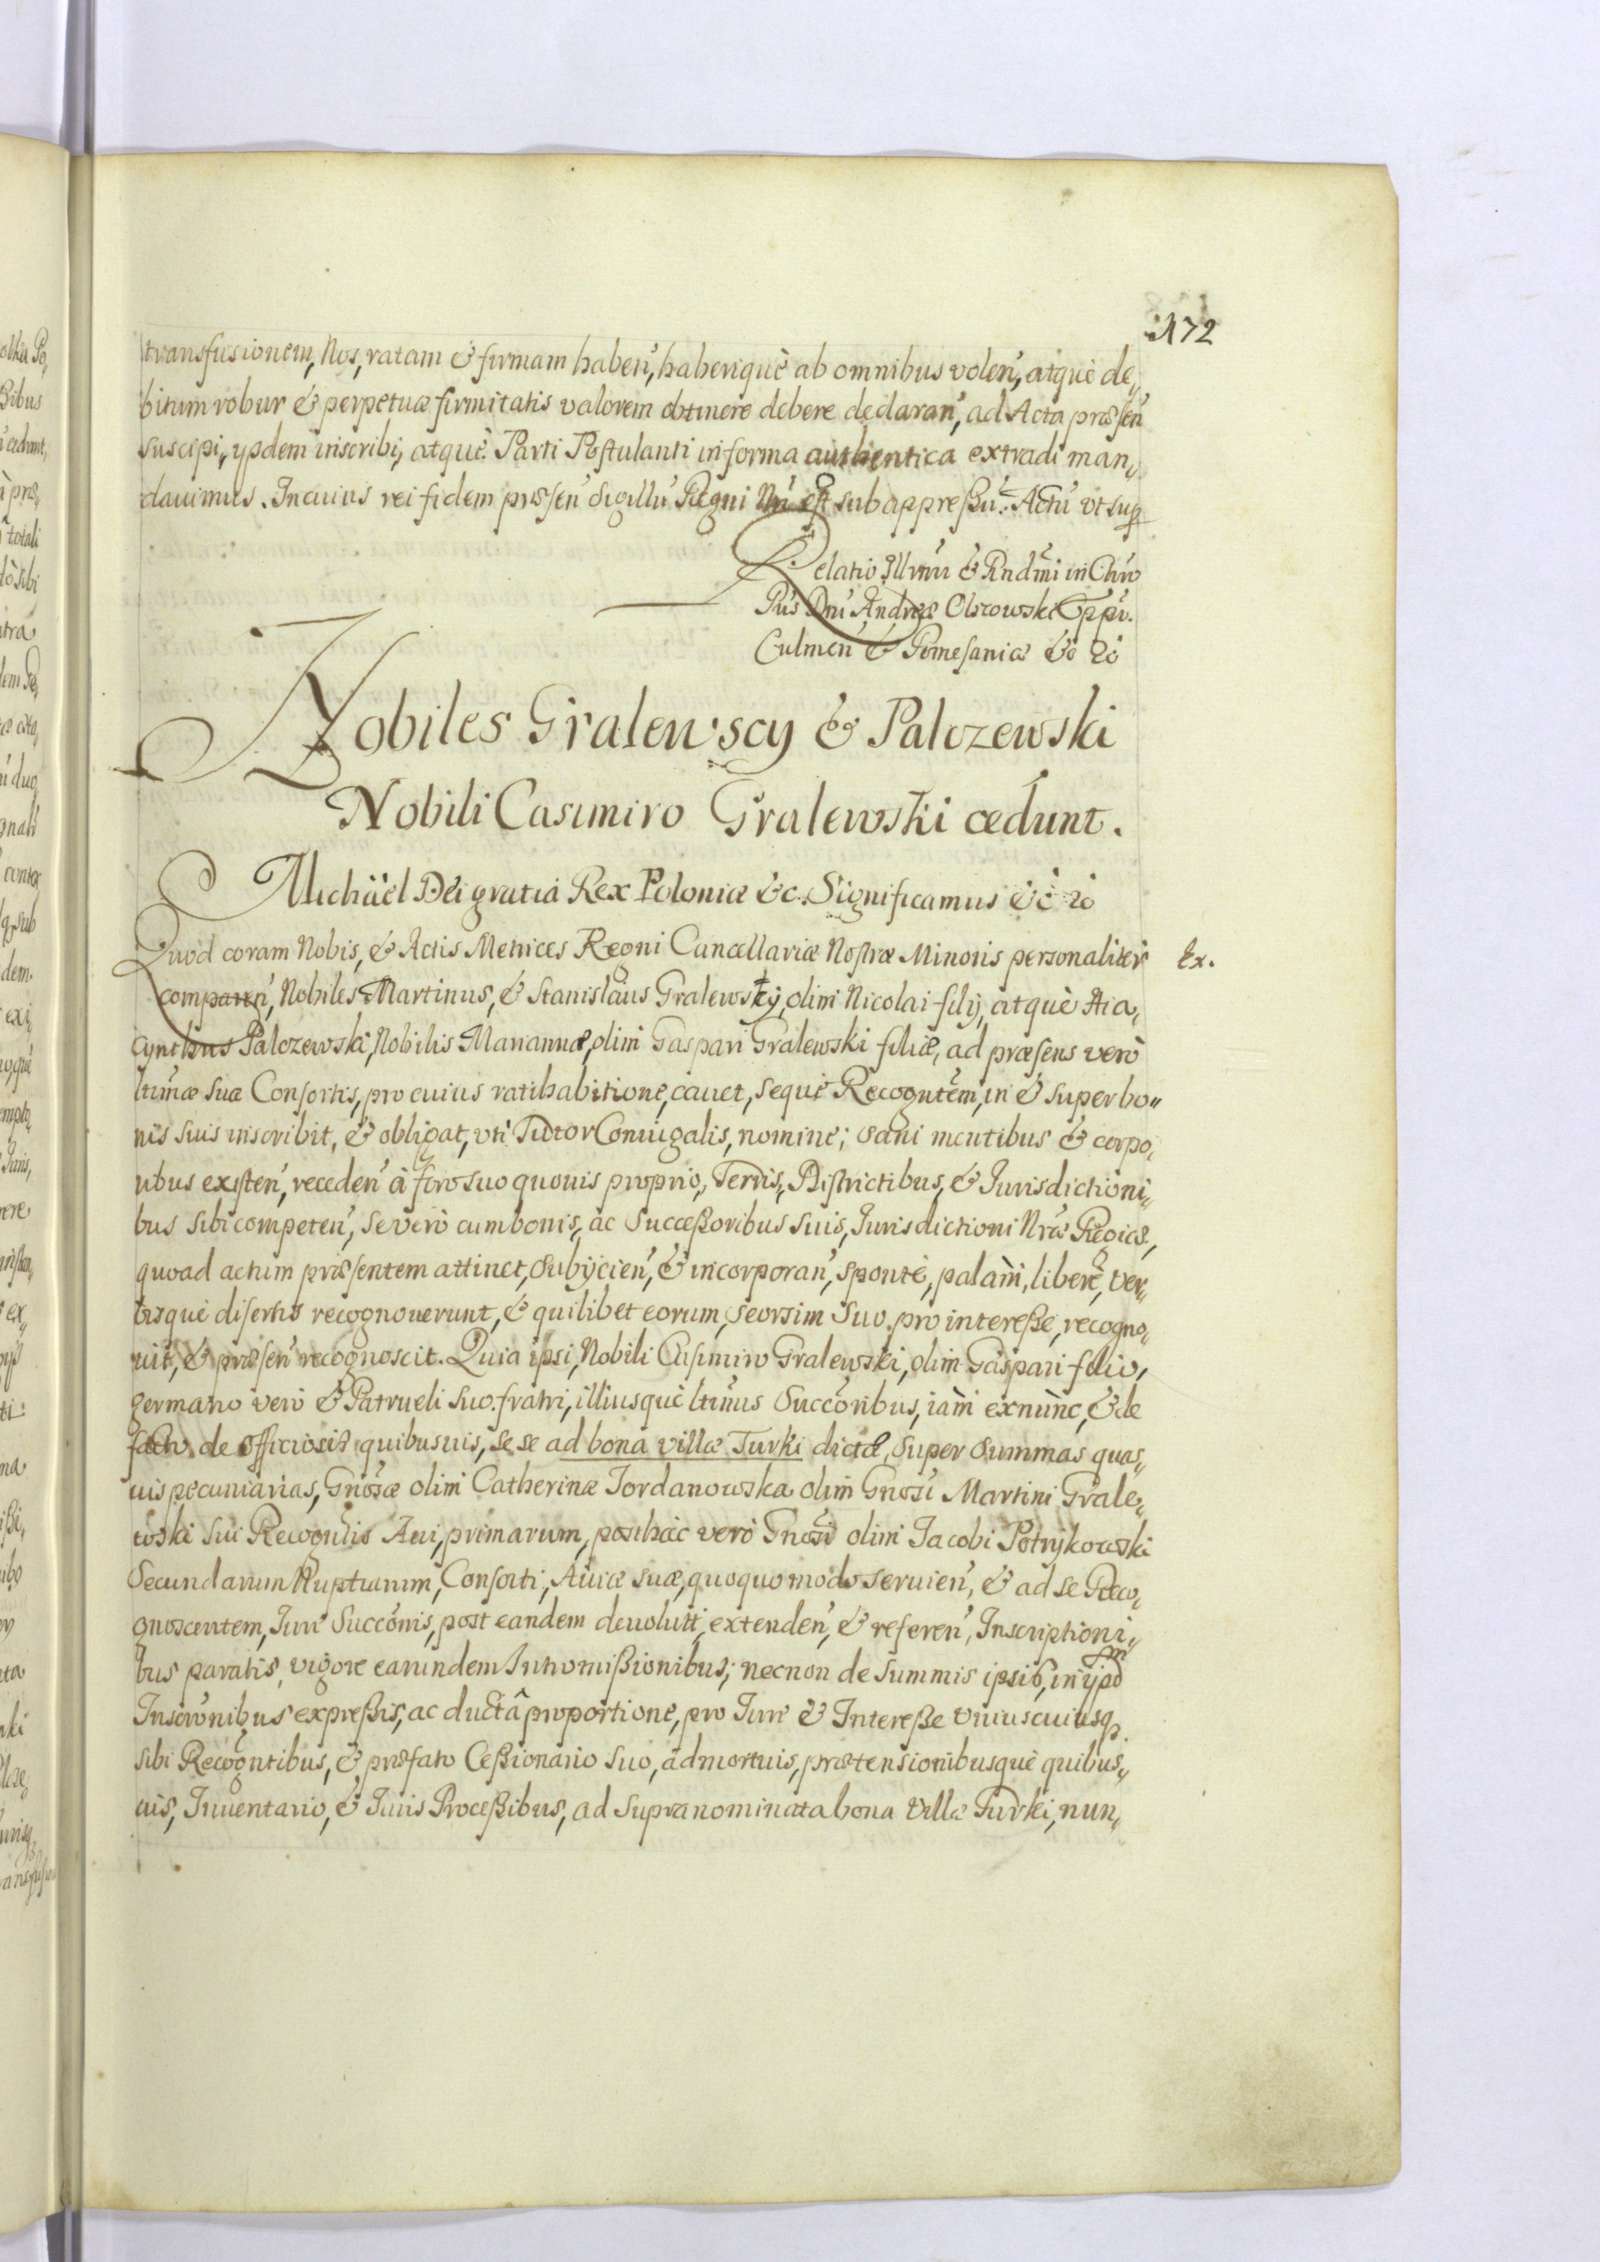 172
transfusionem, Nos, ratam & firmam haben, haberiquè ab omnibus volen, atquè de„
bitum robur & perpetuæ firmitatis valorem obtinere debere declaran, ad Acta præsen
suscipi, ijsdem inscribi, atquè Parti Postulanti in forma authentica extradi man„
dauimus. In cuius rei fidem præsen Sigillũ Regni Nrĩ est subappreßũ. Actũ vt sup
Relatio Illrmi & Rndmi in Chro
Pris Dni Andreæ Olszowski Eppi.
Culmen & Pomesaniæ &c
Nobiles Gralewscy & Palczewski
Nobili Casimiro Gralewski cedunt.
Michäel Dei gratiâ Rex Poloniæ &c. Significamus &c
Quod coram Nobis, & Actis Metrices Regni Cancellariæ Nostræ Minoris personaliter Ex.
comparen, Nobiles Martinus, & Stanislaus Gralewscy, olim Nicolai filij, atquè Hia„
cynthus Palczewski, Nobilis Mariannæ, olim Gaspari Gralewski filiæ, ad præsens verò
ltimæ suæ Consortis, pro cuius ratihabitione, cauet, sequè Recogntem, in & super bo„
nis suis inscribit, & obligat, vti Tutor Coniugalis, nomine; sani mentibus & corpo„
ribus existen, receden à foro suo quouis proprio, Terris, Districtibus, & Jurisdictioni„
bus sibi competen, se verò cum bonis, ac Succeßoribus suis, Jurisdictioni Nræ Regiæ,
quoad actum præsentem attinet, subijcien, & incorporan, spontè, palàm, liberè, ver„
bisquè disertis recognouerunt, & quilibet eorum, seorsim suo pro intereße, recogno„
uit, & præsen recognoscit. Quia ipsi, Nobili Casimiro Gralewski, olim Gaspari filio,
germano verò & Patrueli suo fratri, illiusquè ltimis Succoribus, iàm exnùnc, & de
facto de officiosis quibusuis, sese ad bona villæ Turki dictæ, super summas quas„
uis pecuniarias, Gnosæ olim Catherinæ Jordanowska olim Gnosi Martini Grale„
wski sui Recogntis Aui, primarum, posthàc verò Gnosi olim Jacobi Potrykowski
Secundarum Nuptiarum, Consorti, Auiæ suæ, quoquo modo seruien, & ad se Reco„
gnoscentem, Jure Succonis, post eandem deuoluti, extenden, & referen, Inscriptioni„
bus paratis, vigore earundem Intromißionibus; necnon de summis ipsis, in ijsdm
Inscronibus expreßis, ac ductâ proportione, pro Jure & Intereße vniuscuiusq.
sibi Recogntibus, & præfato Ceßionario suo, admortuis, prætensionibusquè quibus„
uis, Inuentario, & Juris Proceßibus, ad supranominata bona Villæ Turki, nun„